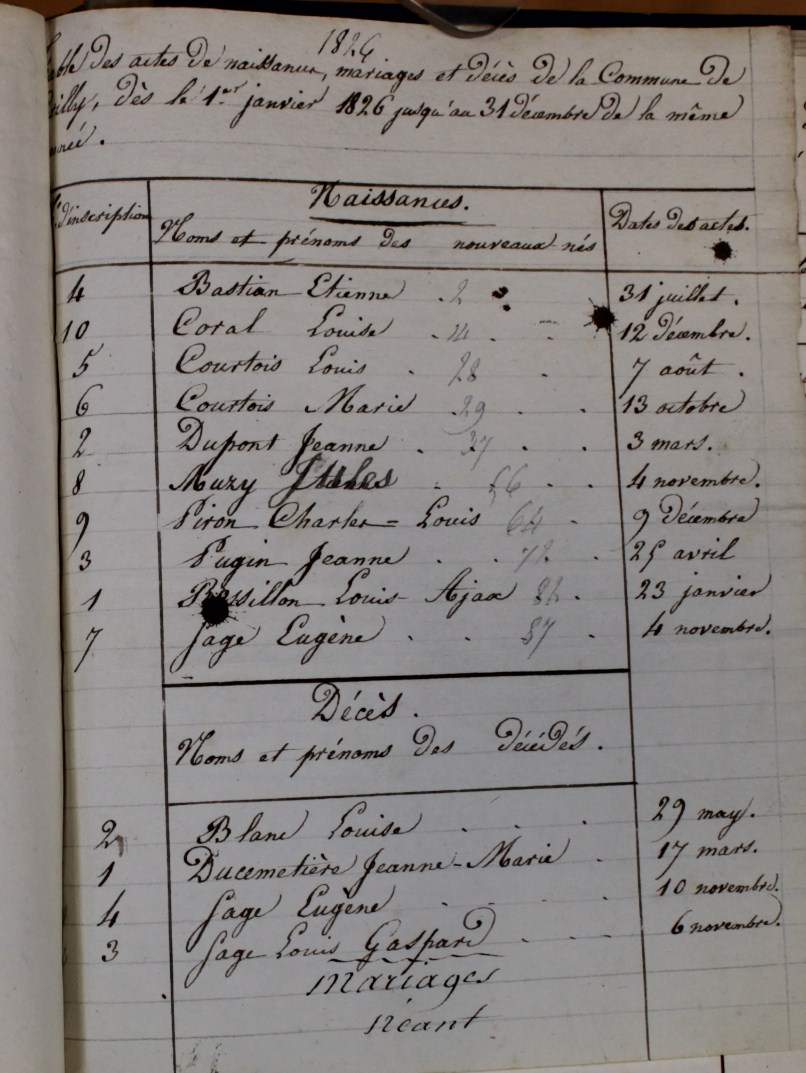 1826
des actes de naissances, mariages et décès de la Commune de
dès le 1.er janvier 1826 jusqu'au 31 décembre de la même
d'inscription Naissances. Dates des actes.
Noms et prénoms des nouveaux nés
4 Bastian Etienne . 2 31 juillet.
10 Coral Louise . . . 12 décembre.
5 Courtois Louis . 28 . 7 août.
6 Courtois Marie 29 . . 13 octobre
2 Dupont Jeanne . 37 . . 3 mars.
8 Muzy Jules . 56 . . 4 novembre.
9 Piron Charles = Louis 64 . 9 décembre
3 Pugin Jeanne . . . 25 avril
1 Louis Ajax . 23 janvier
7 Sage Eugène . . 87 . 4 novembre.
Décès.
Noms et prénoms des décédés.
2 Blanc Louise . . . 29 may.
1 Ducemetière Jeanne-Marie . 17 mars.
4 Sage Eugène . . . 10 novembre.
3 Sage Louis Gaspard . . . 6 novembre.
Mariages
néant